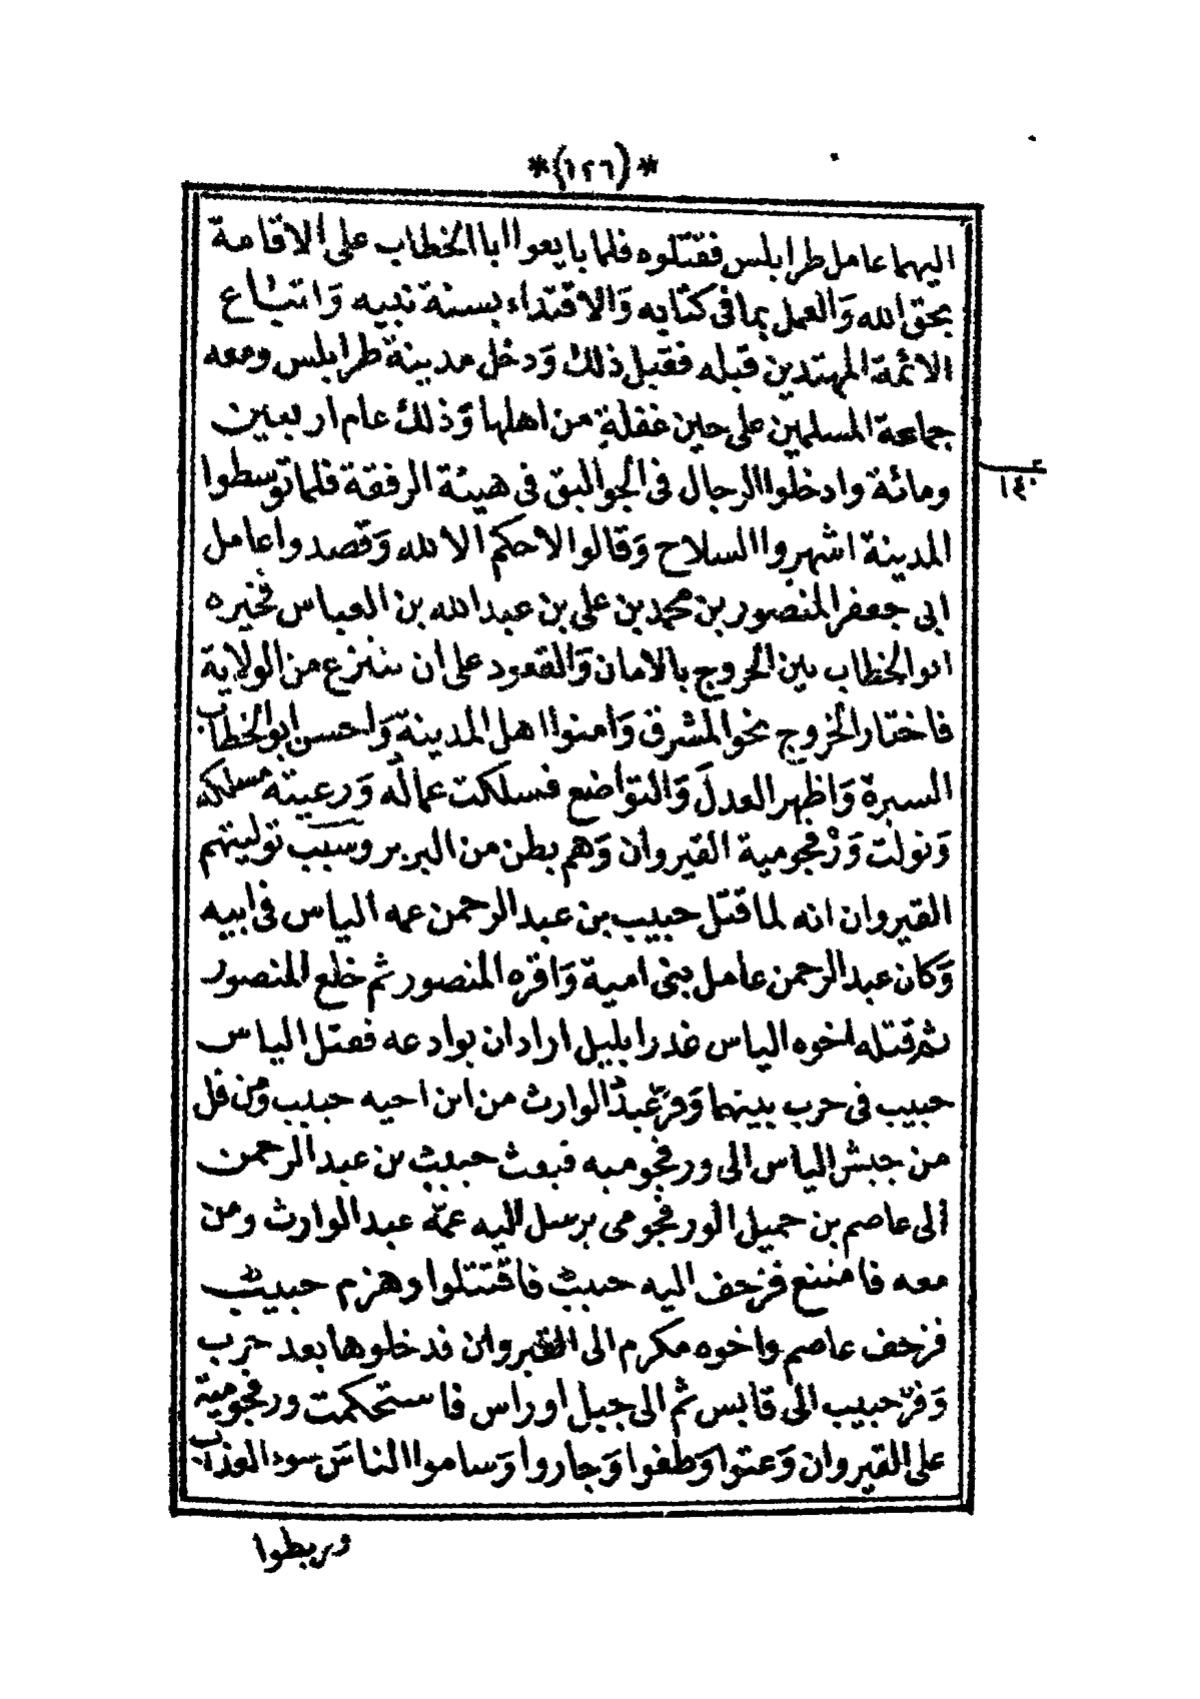 *(١٢٦)*
اليهما عامل طرابلس فقتلوه فلما بايعوا ابا الخطاب على الاقامة
بحق الله وَالعمل بما فى كتابه وَالاقتداء بسنة نبيه وَاتباع
الائمة المهتدين قبله فقبل ذلك وَدخل مدينة طرابلس ومعه
جماعة المسلمين على حين غفلةٍ من اهلها وَذلك عام اربعين
ومائة وادخلوا الرجال فى الجوالبق فى هيئة الرفقة فلما توسطوا
١٤٠
المدينة اشهروا السلاح وَقالوا لاحكم الا لله وَقصدوا عامل
ابى جعفر المنصور بن محمد بن على بن عبد الله بن العباس فخيره
ابو الخطاب بين الخروج بالامان وَالقعود على ان ينزع من الولاية
فاختار الخروج نحو المشرق وَامنوا اهل المدينة وَاحسن ابو الخطاب
السيرة وَاظهر العدلَ وَالتواضع فسلكت عماله وَرعيته مسلكه
وَتولت وَرْفجومية القيروان وَهم بطن من البربر وسبب توليتهم
القيروان انه لما قتل حبيب بن عبد الرحمن عمه الياس فى ابيه
وَكان عبد الرحمن عامل بنى امية وَاقره المنصور ثم خلع المنصور
ثم قتله اخوه الياس غدرا بليل اراد ان يوادعه فقتل الياس
حبيب فى حرب بينهما وَفرّ عبد الوارث من ابن اخيه حبيب وَمن فل
من جيش الياس الى ورفجوميه فبعث حبيب بن عبد الرحمن
الى عاصم بن جميل الورفجومى يرسل اليه عمّه عبد الوارث ومن
معه فامتنع فزحف اليه حبيب فاقتتلوا وهزم حبيب
فزحف عاصم واخوه مكرم الى القيروان فدخلوها بعد حرب
وَفرّ حبيب الى قابس ثم الى جبل اوراس فاستحكمت ورفجومية
على القيروان وَعتوا وَطغوا وَجاروا وَساموا الناسَ سوء العذاب
وربطوا